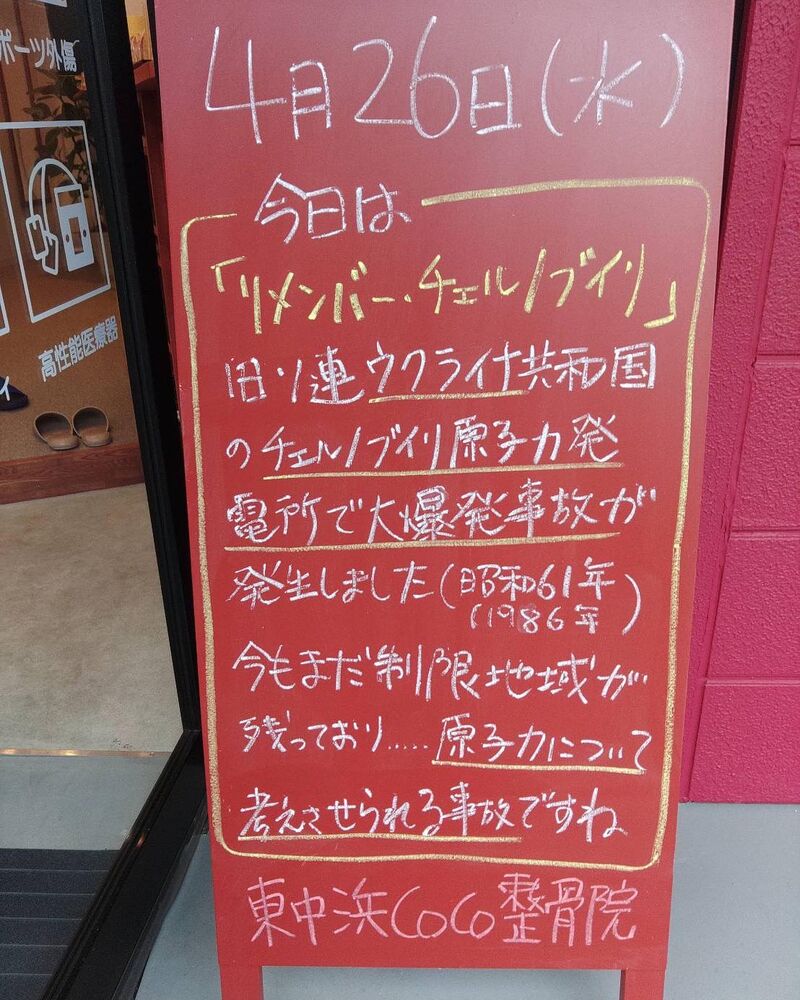 ポーツ外傷
高性能医療器
ィ
4月26日(水)
今日は
「リメンバー・チェルノブイリ」
旧ソ連ウクライナ共和国
のチェルノブイリ原子力発
電所で大爆発事故が
発生しました(昭和61年)
(1986年
今もまだ制限地域が
残っており.....原子力について
考えさせられる事故ですね
東中浜CoCo整骨院